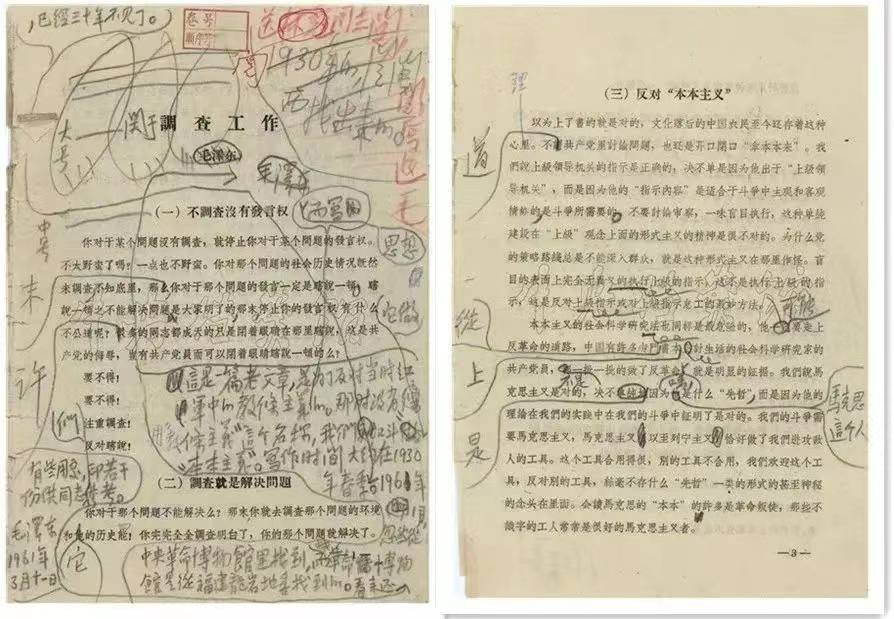 已經三十年不见了。
卷号
順序号
1930年的
找出来的。
大号
关于
調查工作
(毛澤东)
毛澤东
(一) 不調查沒有發言权
中号
你对于某个問題沒有調查，就停止你对于某个問題的發言权。
不太野蛮了嗎？一点也不野蛮。你对那个問題的社会历史情况既然
未調查不知底里，那么你对于那个問題的發言一定是瞎說一頓。瞎
說一頓之不能解决問題是大家明了的那末停止你的發言权有什么
不公道呢？很多的同志都成天的只是閉着眼睛在那里瞎說，这是共
产党的侮辱，豈有共产党員而可以閉着眼睛瞎說一頓的么？
思想
要不得！
要不得！
注重調查！
反对瞎說！
未
许
这是一篇老文章，是为了反对当时红
軍中的教條主義
那时没有
"教條主義"这个名称，我们
叫它
"本本主義"。写作时间大約在1930
年春季
1961年
1月
(二) 調查就是解决問題
有些用意，印若干
份供同志参考。
毛澤东
1961年
3月十一日
你对于那个問題不能解决么？那末你就去調查那个問題的
和他的历史呢！你完完全全調查明白了，你的那个問題就解决了。
它
中央革命博物館里找到，
博物
館是從福建龍岩地委找到的。
(三) 反对“本本主义”
以为上了書的就是对的，文化落后的中国农民至今还存着这种
心里。不謂共产党里討論問題，也还是开口閉口“拿本本来”。我
們說上級領导机关的指示是正确的，决不单是因为他出于“上級領
导机关”，而是因为他的“指示內容”是适合于斗争中主观和客观
情形的，是斗爭所需要的。不要討論审察，一味盲目执行，这种单純
建設在“上級”观念上面的形式主义的精神是很不对的。为什么党
的策略路綫总是不能深入群众，就是这种形式主义在那里作怪。盲
目的表面上完全无異义的执行上級的指示，这不是执行上級的指
示，这是反对上級指示或对上級指示怠工的最妙方法。
本本主义的社会科学研究法也同样是最危险的，他
要走上
反革命的道路，中国有許多
討生活的社会科学研究家的
共产党員，
一批一批的做了反革命，就是明显的証据。我們說馬
克思主义是对的，决不是
什么“先哲”，而是因为他的
理論在我們的实踐中在我們的斗爭中証明了是对的。我們的斗爭需
要馬克思主义，馬克思主义
以至列宁主义
恰好做了我們进攻敌
人的工具。这个工具合用得很，别的工具不合用，我們欢迎这个工
具，反对别的工具，絲毫不存什么“先哲”一类的形式的甚至神秘
的念头在里面。会讀馬克思的“本本”的許多是革命叛徒，那些不
識字的工人常常是很好的馬克思主义者。
理
道
從
上
是
可能
馬克思
這个人
—3—